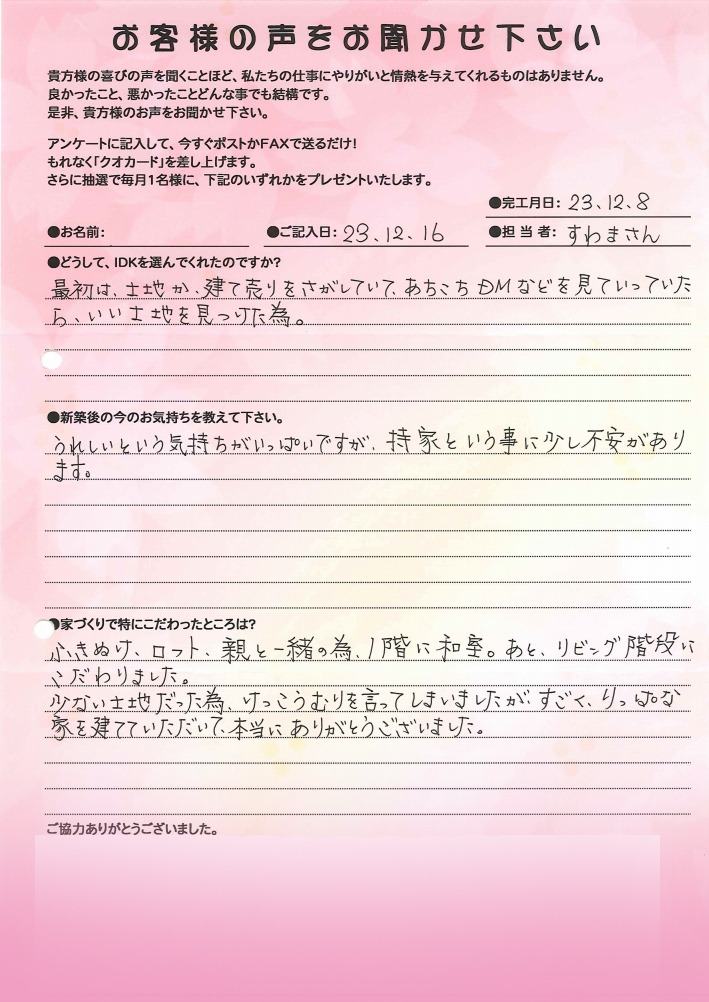 お客様の声をお聞かせ下さい
貴方様の喜びの声を聞くことほど、私たちの仕事にやりがいと情熱を与えてくれるものはありません。
良かったこと、悪かったことどんな事でも結構です。
是非、貴方様のお声をお聞かせ下さい。
アンケートに記入して、今すぐポストかFAXで送るだけ!
もれなく「クオカード」を差し上げます。
さらに抽選で毎月1名様に、下記のいずれかをプレゼントいたします。
●完工月日: 23、12、8
●お名前: ●ご記入日: 23、12、16 ●担当者: すわまさん
●どうして、IDKを選んでくれたのですか?
最初は、土地か、建て売りをさがしていて、あちこちDMなどを見ていっていた
ら、いい土地を見つけた為。
●新築後の今のお気持ちを教えて下さい。
うれしいという気持ちがいっぱいですが、持家という事に少し不安があり
ます。
●家づくりで特にこだわったところは?
ふきぬけ、ロット、親と一緒の為、1階に和室。あと、リビング階段に
こだわりました。
少ない土地だった為、けっこうむりを言ってしまいましたが、すごく、りっぱな
家を建てていただいて、本当にありがとうございました。
ご協力ありがとうございました。